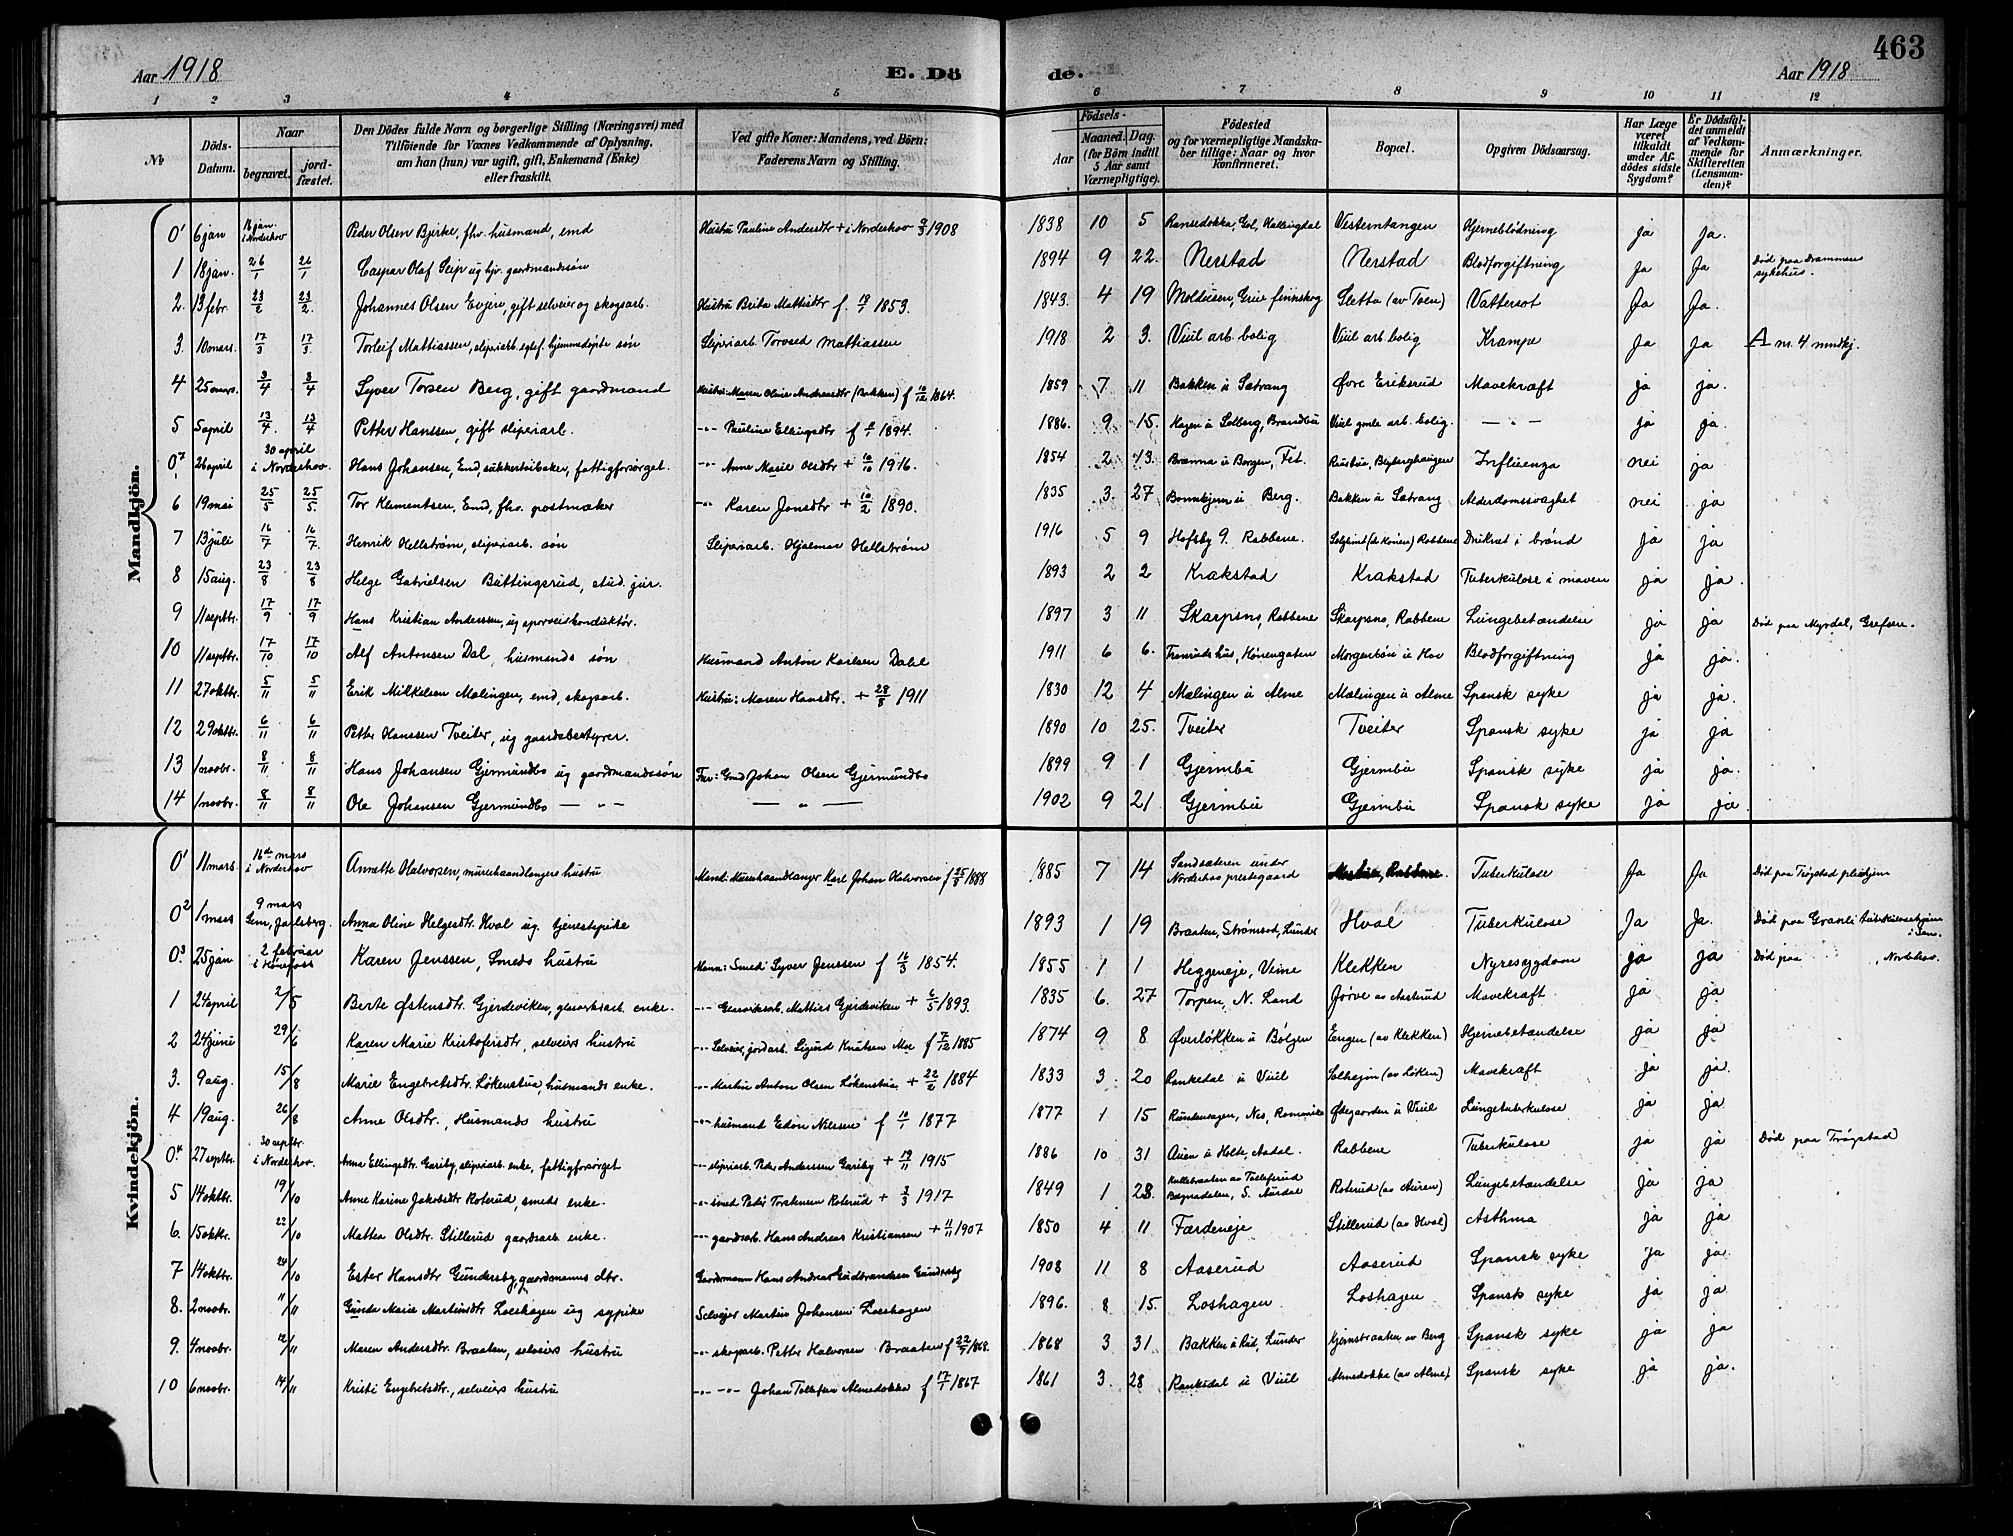 463
Aar 1918 E. Dö de. Aar 1918
1 2 3 4 5 6 7 8 9 10 11 12
No
Döds-Datum.
Naar
begravet.
jord-fæstet.
Den Dödes fulde Navn og borgerlige Stilling (Næringsvei) med
Tilföiende for Voxnes Vedkommende af Oplysning,
om han (hun) var ugift, gift, Enkemand (Enke)
eller fraskilt.
Ved gifte Koner: Mandens, ved Börn:
Faderens Navn og Stilling.
Födsels-
Aar Maaned. Dag.
(for Börn indtil
5 Aar samt
Værnepligtige).
Födested
og for værnepligtige Mandska-
ber tillige: Naar og hvor
konfirmeret.
Bopæl.
Opgiven Dödsaarsag.
Har Læge
været
tilkaldt
under Af-
dödes sidste
Sygdom?
Er Dödsfal-
det anmeldt
af Vedkom-
mende for
Skifteretten
(Lensman-
den)?
Anmærkninger.
Mandkjön.
0¹ 6 jan 16 jan. i Norderhov Peder Olsen Bjerke, fhv. husmand, emd Hustru Pauline Andersdtr + i Norderhov 9/3 1908 1838 10 5 Ransedokka, Gol, Hallingdal Vesterntangen Hjerneblödning ja ja.
1 18 jan. 26/1 26/1 Caspar Olaf Seip ug hjv. gaardmandssön 1894 9 22. Nerstad Nerstad Blodforgiftning Ja Ja Död paa Drammens sykehus.
2. 13 febr. 23/2 23/2. Johannes Olsen Evjen, gift selveier og skogsarb. Hustru Brita Mattisdtr f. 19/7 1853. 1843. 4 19 Moldusen, Grue finnskog Sletta (av Tven) Vattersot Ja Ja.
3. 10 mars. 17/3 17/3. Torleif Mattiassen, sliperiarb. hjemmedöpte sön Sliperiarb. Torvald Mattiassen 1918 2 3. Viul arb. bolig Viul arb. bolig Krampe Ja Ja A nr. 4 mndkj.
4 25 mars. 3/4 3/4 Syver Torsen Berg, gift gaardmand Hustru Maren Oline Andreasdtr (Bakken) f 12/12 1864. 1859 7 11 Bakken u Sætrang Øvre Eriksrud Mavekræft ja ja.
5 5 april 13/4. 13/4 Petter Hanssen, gift sliperiarb. -"- Pauline Ellingsdtr f 1894. 1886. 9 15. Hagen u Solberg, Brandbu Viul gmle arb. bolig. — " — ja ja.
0.² 26 april 30 april i Norderhov. Hans Johansen, Emd, sukkertöibaker, fattigforsörget. -"- Anne Marie Olsdtr + 16/10 1916. 1854 2 13. Brænna u Borgen, Fet. Influenza nei ja
6 19 mai 25/5 25/5. Tor Klementsen, Emd, fhv. postmaker -"- Karen Jonsdtr + 10/2 1890. 1835 3. 27 Bonnkjern u Berg. Bakken u Sætrang Alderdomssvaghet nei ja
7 13 juli 16/7 16/7. Henrik Hellström, sliperiarb. sön Sliperiarb. Hjalmar Hellström 1916 5 9 Hofsby g. Rabbene. Rabbene Druknet i brönd ja ja
8 15 aug. 23/8 23/8 Helge Gabrielsen Büttingsrud, stud. jur. 1893 2 2 Krakstad Krakstad Tuberkulose i maven ja ja.
9 11 septbr. 17/9 17/9 Hans Kristian Anderssen, ug sporveiskonduktör. 1897 3 11 Skarpsno, Rabbene Skarpsno, Rabbene Lungebetændelse ja ja Död paa Myrdal, Grefsen.
10 11 septbr. 17/10 17/10 Alf Antonsen Dal, husmands sön Husmand Anton Karlsen Dahl 1911 6 6. Tranruds hus, Hönengaten Morgenbön u Hov Blodforgiftning ja ja.
11 27 oktbr. 5/11 5/11 Erik Mikkelsen Malingen, emd, skogsarb. Hustru: Maren Hansdtr. + 28/8 1911 1830 12 4 Mælingen u Alme Mælingen u Alme Spansk syke ja ja.
12 29 oktbr. 6/11 6/11 Petter Hanssen Tveiter, ug gaardsbestyrer. 1890 10 25. Tveiter Tveiter Spansk syke ja ja
13 1 novbr. 8/11 8/11 Hans Johansen Gjermundbo ug gaardmandssön Far: Gmd Johan Olsen Gjermundbo 1899 9 1 Gjermbu Gjermbu Spansk syke ja ja.
14 1 novbr. 8/11 8/11 Ole Johansen Gjermundbo — " — — " — 1902 9 21 Gjermbu Gjermbu Spansk syke ja ja
Kvindekjön.
0¹ 11 mars 16de mars i Norderhov Annette Halvorsen, murerhaandlangers hustru Mand: Murerhaandlanger Karl Johan Halvorsen f 25/8 1888 1885 7 14 Sandsæteren under Norderhov prestegaard Tuberkulose Ja Ja Död paa Trögstad pleiehjem
0² 1 mars 9 mars Sem, Jarlsberg. Anna Oline Helgesdtr. Hval ug. tjenestepike 1893 1 19 Braaten, Strömsod, Lunder Hval Tuberkulose Ja Ja. Död paa Granli tuberkulosehjem i Sem.
0.³ 25 jan 2 februar i Hönefoss Karen Jenssen, Smeds hustru Mann: Smed Syver Jenssen f 16/3 1854. 1855 1 1 Heggeneje, Veme Klekken Nyresygdom ja ja Död paa , Norderhov.
1 24 april 2/5 Berte Östensdtr. Gjerdeviken, glasverksarb. enke. -"- Glasverksarb. Mattias Gjerdeviken + 6/5 1893. 1835 6. 27 Torpen, N. Land Jörve av Aaserud Mavekræft ja ja
2 24 juni 29/6 Karen Marie Kristofersdtr, selveiers hustru -"- Selveier, jordarb. Sigurd Knutsen Moe f 7/12 1885 1874 9 8 Överlökken u Bölgen Engen (av Klekken) Hjernebetændelse ja ja
3. 9 aug. 15/8 Marie Engebretsdtr. Lökenstua, husmands enke. -"- Martin Anton Olsen Lökenstua + 22/2 1884 1833 3 20 Rankedal u Viul Solhagen (av Löken) Mavekræft ja ja.
4 19 aug. 26/8 Anne Olsdtr., Husmands hustru -"- husmand Edon Nilssen f 10/1 1877 1877 1 15 Rundhaugen, Nes, Romerike Ödegaarden u Viul Lungetuberkulose ja ja
0.⁴ 27 septbr. 30 septbr. i Norderhov. Anna Ellingsdtr. Garsby, sliperiarb. enke, fattigforsörget -"- sliperiarb. Peder Anderssen Garsby + 19/11 1915 1886 10 31 Auen u Holte, Aadal. Rabbene Tuberkulose ja ja Död paa Trögstad
5 14 oktbr. 19/10 Anne Karine Jakobsdtr Roterud, smeds enke. -"- smed Peder Roterud + 3/3 1917 1849 1 28. Bægnadalen, S. Aurdal Roterud (av Auren) Lungebetændelse ja ja
6. 15 oktbr. 22/10 Mattea Olsdtr. Stillerud gaardsarb. enke. -"- gaardsarb. Hans Andreas Kristiansen + 11/11 1907 1850 4 11 Færdeneje Stillerud (av Hval) Asthma ja ja
7 14 oktbr. 24/10 Ester Hansdtr Gundersby, gaardmanns dtr. Gaardmann Hans Andreas Gudbrandsen Gundersby 1908 11 8 Aaserud Aaserud Spansk syke ja ja.
8. 2 novbr. 11/11 Gunda Marie Martinsdtr Loeshagen ug sypike Selveier Martin Johansen Loeshagen 1896. 8 15. Loshagen Loshagen Spansk syke ja ja
9. 4 novbr. 12/11 Maren Andersdtr. Braaten, selveiers hustru -"- skogarb. Petter Halvorsen Braaten f 22/7 1868. 1868 3 31 Bakken u Rud, Lunder Kjernsbraaten av Berg Spansk syke ja ja
10 6 novbr. 14/11 Kristi Engebretsdtr., selveiers hustru -"- -"- Johan Tollefsen Almedokka f 17/1 1867 1861 3. 28 Rankedal u Viul Almedokka (av Alme) Spansk syke ja ja.